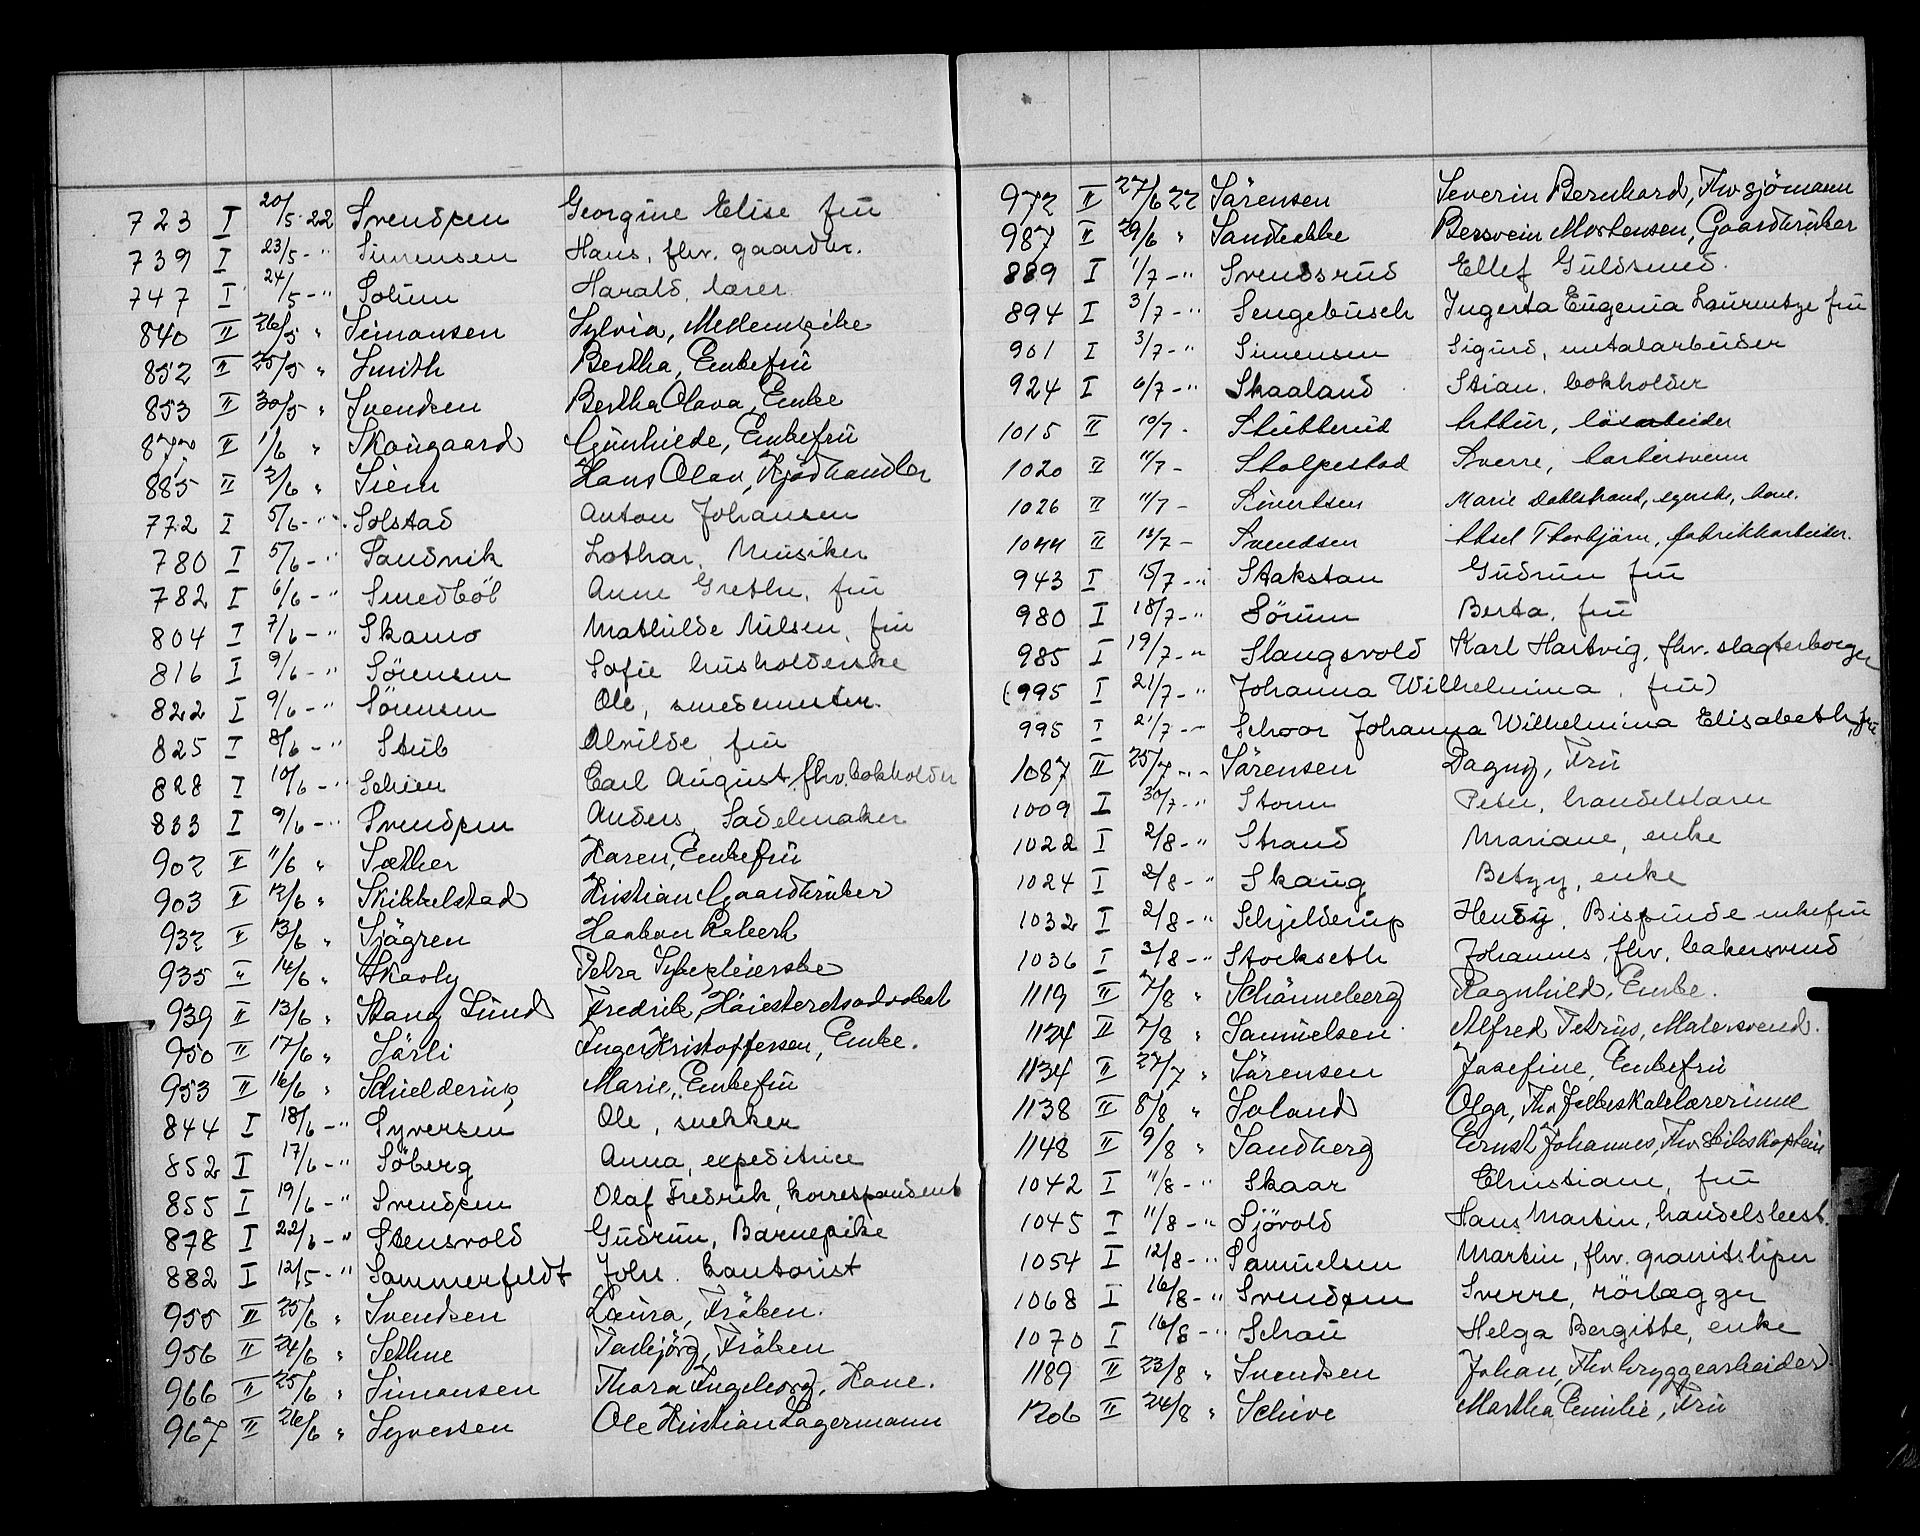 723 I 20/5-22 Svendsen Georgine Elise frü
739 I 23/5-" Simensen Hans, fhv. gaardbr.
747 I 24/5-" Solum Harald, lærer
840 II 26/5 " Simonsen Sylvia,
852 II 25/5 " Smith Bertha, Enkefrü
853 II 30/5 " Svendsen Bertha Olava, Enke
II 1/6 " Skougaard Gunhilde, Enkefrü
885 II 2/6 " Siem Hans Olav, Kjødhandler
772 I 5/6-" Solstad Anton Johansen
780 I 5/6-" Sandvik Lothar, Musiker
782 I 6/6-" Smedböl Anne Grethe, frü
804 I 7/6-" Skamo Mathilde Nilsen, frü
816 I 9/6-" Sørensen Sofie husholderske
822 I 9/6-" Sørensen Ole, smedemester.
825 I 8/6-" Stub Alvilde, frü
828 I 10/6-" Schier Carl August, fhv. bokholder
833 I 9/6-" Svendsen Anders, Sadelmaker
902 II 11/6 " Sæther Karen, Enkefrü
903 II 12/6 " Skikkelstad Kristian Gaardbruker
932 II 13/6 " Sjøgren Haakon Robert
935 " 14/6 " Skasly Petra Sykepleierske
939 II 13/6 " Stang Lund Fredrik, Høiesteretsadvokat
950 II 17/6 " Sørli Inger Kristoffersen, Enke.
953 II 16/6 " Schielderup Marie, Enkefrü
844 I 18/6-" Syversen Ole, snekker
852 I 17/6-" Söberg Anna, expeditrice
855 I 19/6-" Svendsen Olaf Fredrik, korrespondent
878 I 22/6-" Stensvold Gudrun, Barnepike
882 I 12/5-" Sommerfeldt Johs. kontorist
955 II 25/6 " Svendsen Laura, Frøken.
956 II 24/6 " Sethne Torbjörg, Frøken
966 II 25/6 " Simonsen Thora Ingeborg, Kone.
967 II 26/6 " Syversen Ole Kristian Lagermann
972 II 27/6 22 Sørensen Severin Bernhard, Fhv sjömann
987 II 29/6 " Sandbekke Bersvein Mortensen, Gaardbruker
889 I 1/7-" Svendsrud Ellef Guldsmed.
894 I 3/7-" Sengebusch Ingerta Eugenia Laurentze frü
901 I 3/7-" Simensen Sigurd, metalarbeider
924 I 6/7-" Skaaland Stian, bokholder
1015 II 10/7- Stubberud Arthur, løsarbeider
1020 II 11/7- Stolpestad Sverre, barbersvenn
1026 II 11/7- Sivertsen Marie Dahlstrand, kone.
1044 II 13/7- Svendsen Aksel Thorbjørn, fabrikkarbeider.
943 I 15/7-" Stakston Gudrun frü
980 I 18/7-" Sörum Berta, frü
985 I 19/7-" Slangsvold Karl Hartvig, fhv. slagterborger
(995 I 21/7-" Johanna Wilhelmina, frü)
995 I 21/7-" Schoor Johanna Wilhelmina Elisabeth, frü
1087 II 25/7-"- Sørensen Dagny, Frü
1009 I 30/7-" Storm Peter, handelsborger
1022 I 2/8-" Strand Mariane, enke
1024 I 2/8-" Skaug Betzy, enke
1032 I 2/8-" Schjelderup Hendy, Bispinde enkefrü
1036 I 3/8-" Stockseth Johannes, fhv. bakersvend
1119 II 7/8 " Schønneberg Ragnhild, Enke.
1124 II 7/8 " Samuelsen Alfred Petrus, Malersvend.
1134 II 27/7 " Sørensen Josefine, Enkefrü
1138 II 8/8 " Soland Olga, Fhv Folkeskolelærerinne
1148 II 9/8 " Sandberg Ernst Johannes, Fhv Skibskaptein
1042 I 11/8-" Skaar Christiane, frü
1045 I 11/8-" Sjövold Hans Martin, handelsbest.
1054 I 12/8-" Samuelsen Martin, fhv. granitsliper
1068 I 16/8-" Svendsen Sverre, rörlægger
1070 I 16/8-" Schau Helga Bergitte, enke
1189 II 23/8 " Svendsen Johan, Fhv bryggearbeider
1206 II 24/8 " Schive Martha Emilie, Frü